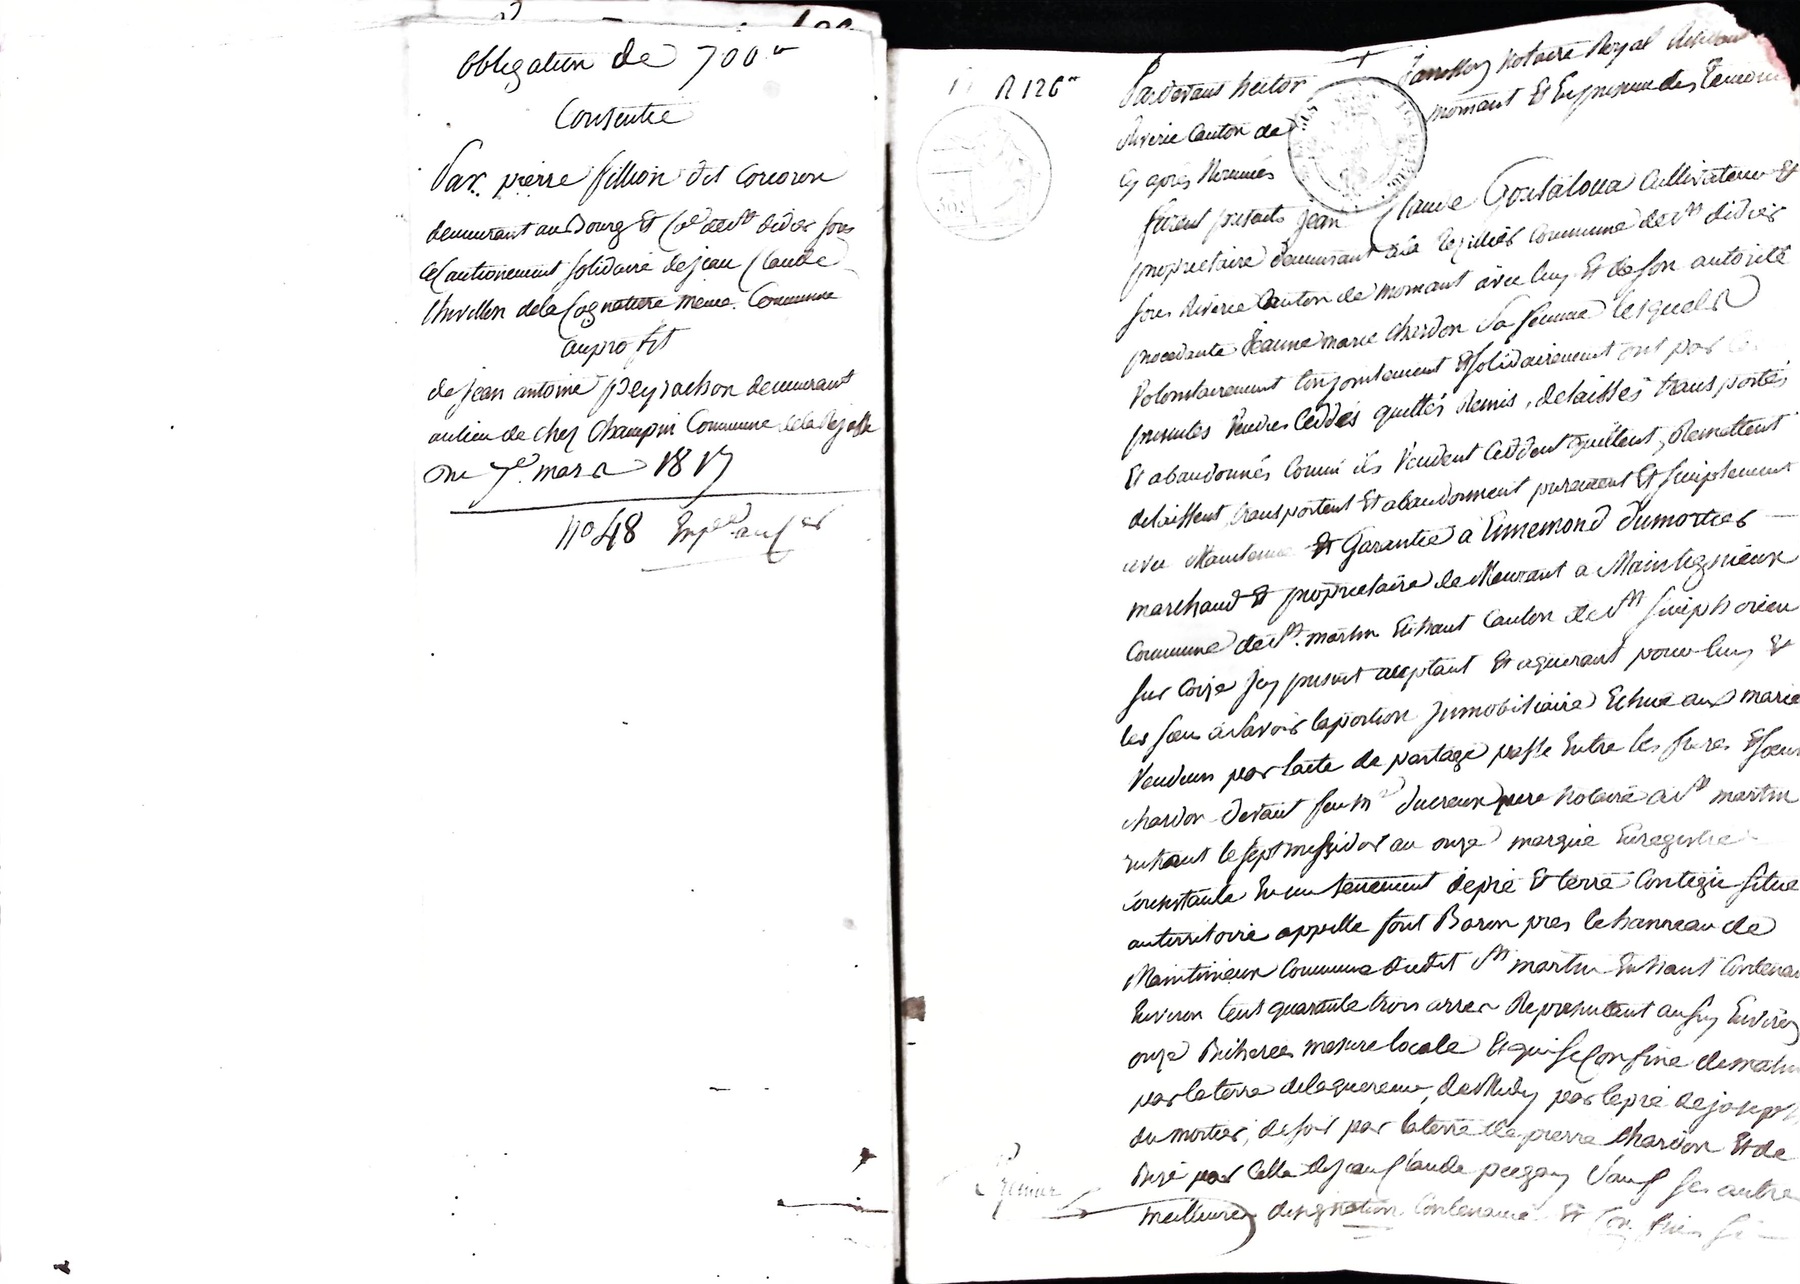 Obligation de 700 #
Consentie
Par pierre fillion dit corcoron
demeurant au Bourg et Cne de St didier sous
Cautionnement solidaire de jean Claude
thivillon de la même Commune
au profit
de jean antoine peyrachon demeurant
au lieu de chez Champin Commune de la Rajasse
Du 7e. mars 1817
no 48
R 126
Pardevant hector notaire Royal Résidant
Riverie Canton de mornant Et En presence des temoins
Cy après Nommés
furent presents jean Claude Cultivateur Et
proprietaire demeurant à la Commune de St didier
sous Riverie Canton de mornant avec luy Et de son autorité
procedante jeanne marie chardon Sa femme lesquels
Volontairement Conjointement Et solidairement ont par
presentes Vendus Ceddés quittés Remis, delaissés transportés
Et abandonnés Comme ils Vendent Ceddent quittent, Remettent
delaissent transportent Et abandonnent purement Et simplement
avec Maintenue Et Garantie à Ennemond dumortier
marchand Et proprietaire demeurant a
Commune de St. martin En haut Canton de St Simphorien
sur Coize Jcy present acceptant Et aquerant pour luy Et
les siens à savoir la portion Jmmobiliaire Echue aux marie
Vendeurs par l'acte de partage passé Entre les freres Et soeurs
chardon devant feu me ducreux pere Notaire à St martin
En haut le sept messidor an onze Enregistré
consistante En un tennement de pré Et terre Contigu situé
au territoire appellé font Baron pres le hameau de
Commune dudit St martin En haut Contenant
Environ Cent quarante trois arres Representant aussy Environ
onze Bicherees mesure locale Et qui se Confine de matin
par la terre de l'aquereur, de Midy par le pré de joseph
du mortier, de soir par la terre de pierre chardon Et de
Bize par Celle de jean Claude Sauf ses autres
meilleures designation Contenance Et Confins
Premier